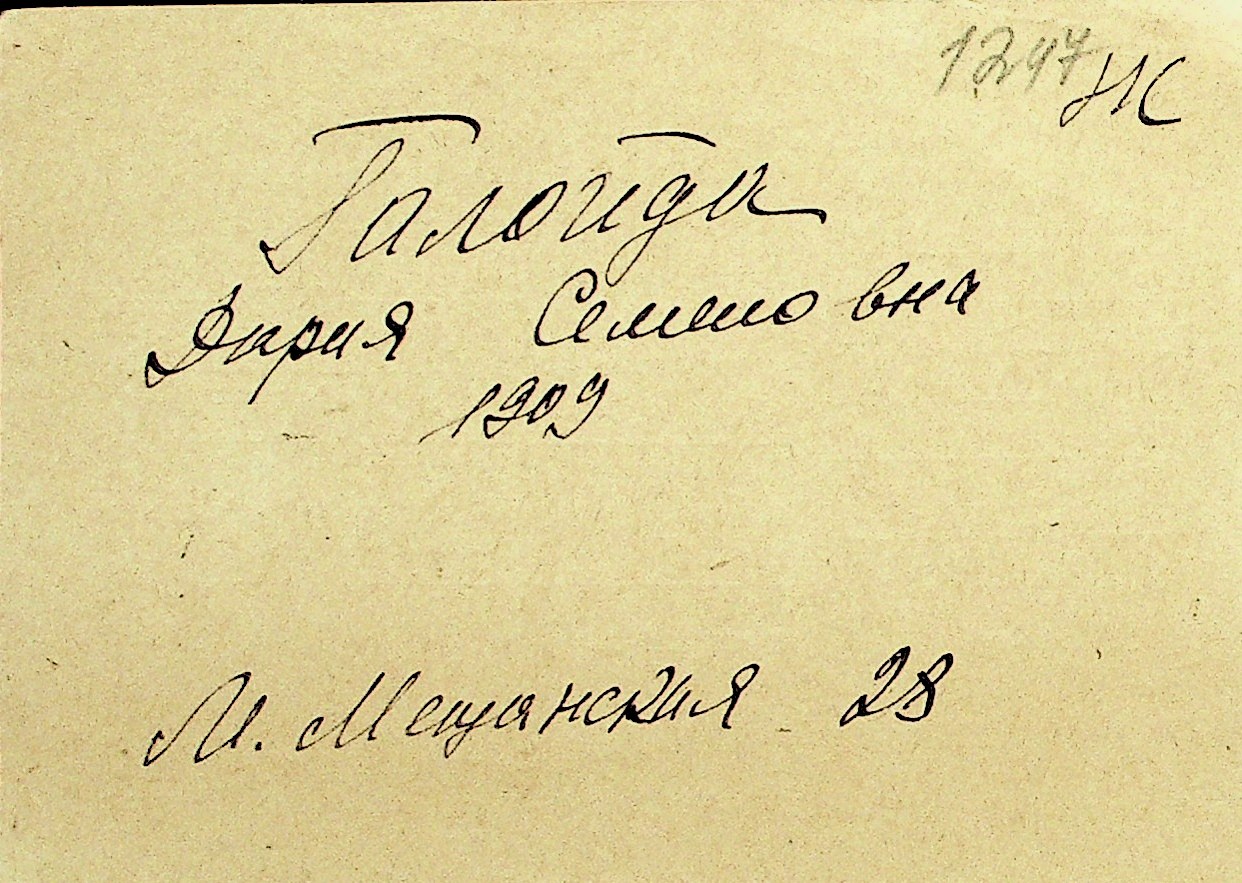 1247 НС
Галойда
Дария Семеновна
1909
М. Мещанская 28